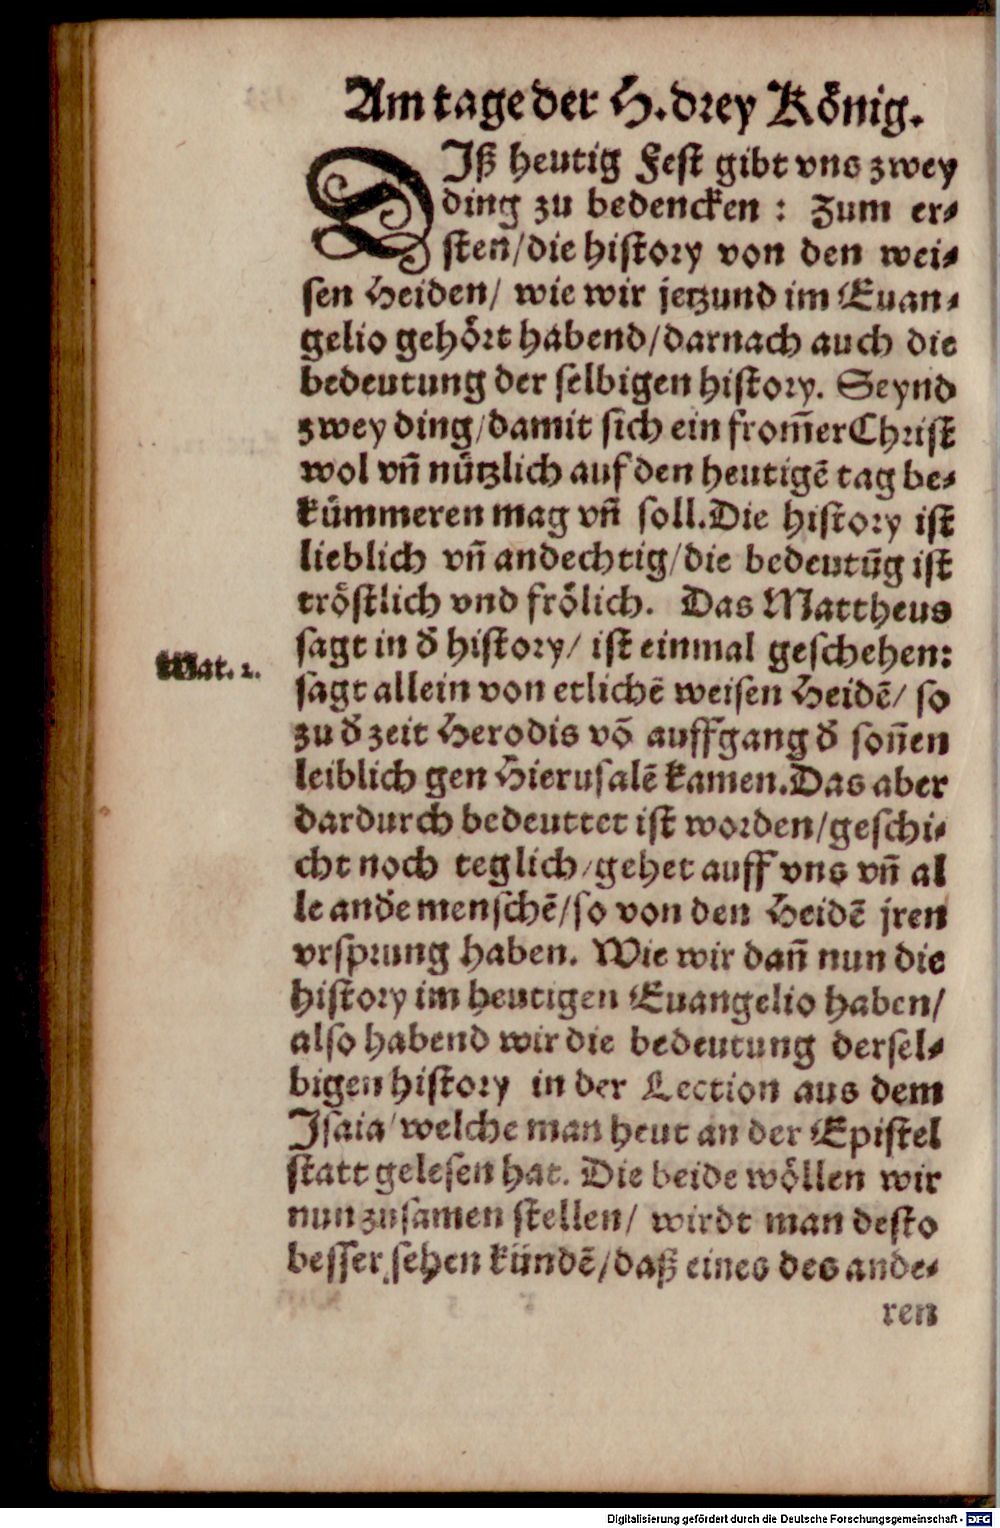 Am tage der H. drey König.
DIß heutig Fest gibt vns zwey
ding zu bedencken : Zum er⸗
sten/die history von den wei⸗
sen Heiden/ wie wir jetzund im Euan⸗
gelio gehört habend/darnach auch die
bedeutung der selbigen history. Seynd
zwey ding/damit sich ein from̃er Christ
wol vñ nützlich auf den heutigẽ tag be⸗
kümmeren mag vñ soll. Die history ist
lieblich vñ andechtig/die bedeutũg ist
tröstlich vnd frölich. Das Mattheus
sagt in d̕ history/ ist einmal geschehen:
Mat. 2.
sagt allein von etlichẽ weisen Heidẽ/ so
zu d̕ zeit Herodis võ auffgang d̕ soñen
leiblich gen Hierusalẽ kamen. Das aber
dardurch bedeuttet ist worden/geschi⸗
cht noch teglich/gehet auff vns vñ al
le and̕e menschẽ/so von den Heidẽ jren
vrsprung haben. Wie wir dañ nun die
history im heutigen Euangelio haben/
also habend wir die bedeutung dersel⸗
bigen history in der Lection aus dem
Isaia/welche man heut an der Epistel
statt gelesen hat. Die beide wöllen wir
nun zusamen stellen/ wirdt man desto
besser sehen kündẽ/daß eines des ande⸗
ren
Digitalisierung gefördert durch die Deutsche Forschungsgemeinschaft - DFG